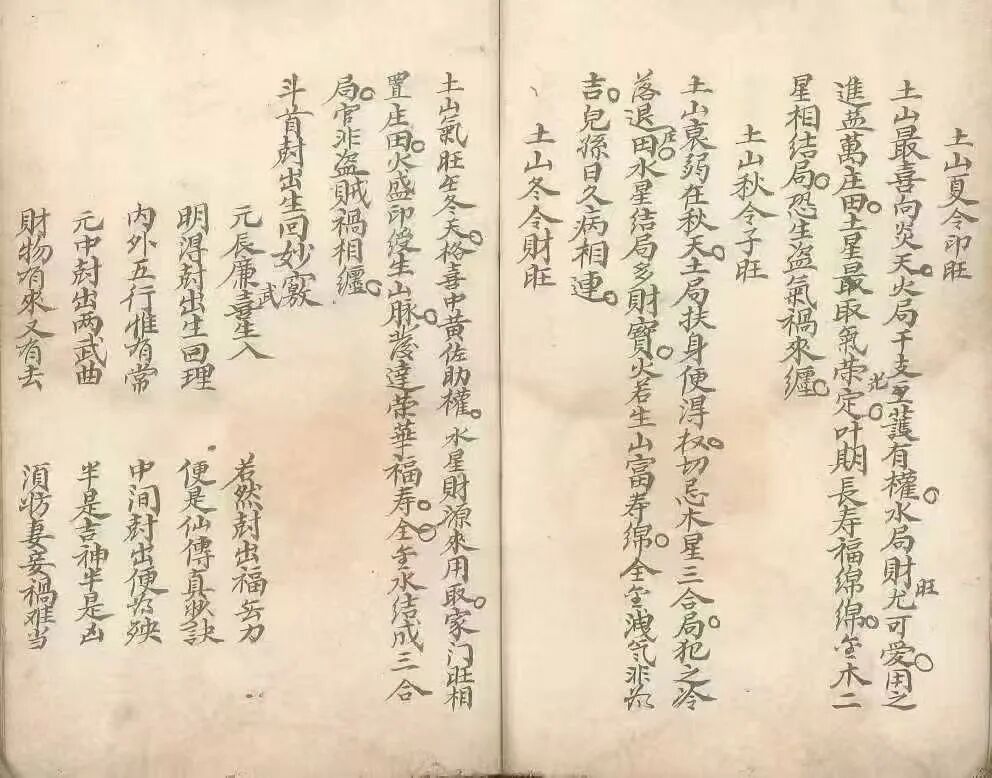 土山夏令印旺
土山最喜向炎天。火局干支互護有權。水局財旺尤可愛。用之
進益萬庄田。土星最取氣荣光定。叶期長寿福綿綿。金木二
星相结局。恐生盗氣禍來纏。
土山秋令子旺
土山衰弱在秋天。土局扶身便得权。切忌木星三合局。犯之冷
落退庄田。水星结局多財寶。火若生山富寿綿。全金洩气非为
吉。兒孫日久病相連。
土山冬令財旺
土山氣旺生冬天。格喜中黄佐助權。水星財源來用取。家门旺相
置庄田。火盛印绶生山脉。發達荣華福寿全。金水结成三合
局。官非盗賊禍相纏。
斗首尅出生回妙竅
元辰廉武喜生入 若然尅出福无力
明得尅出生回理 便是仙傳真妙訣
内外五行惟有常 中间尅出便为殃
元中尅出两武曲 半是吉神半是凶
財物有來又有去 須妨妻妾禍难当